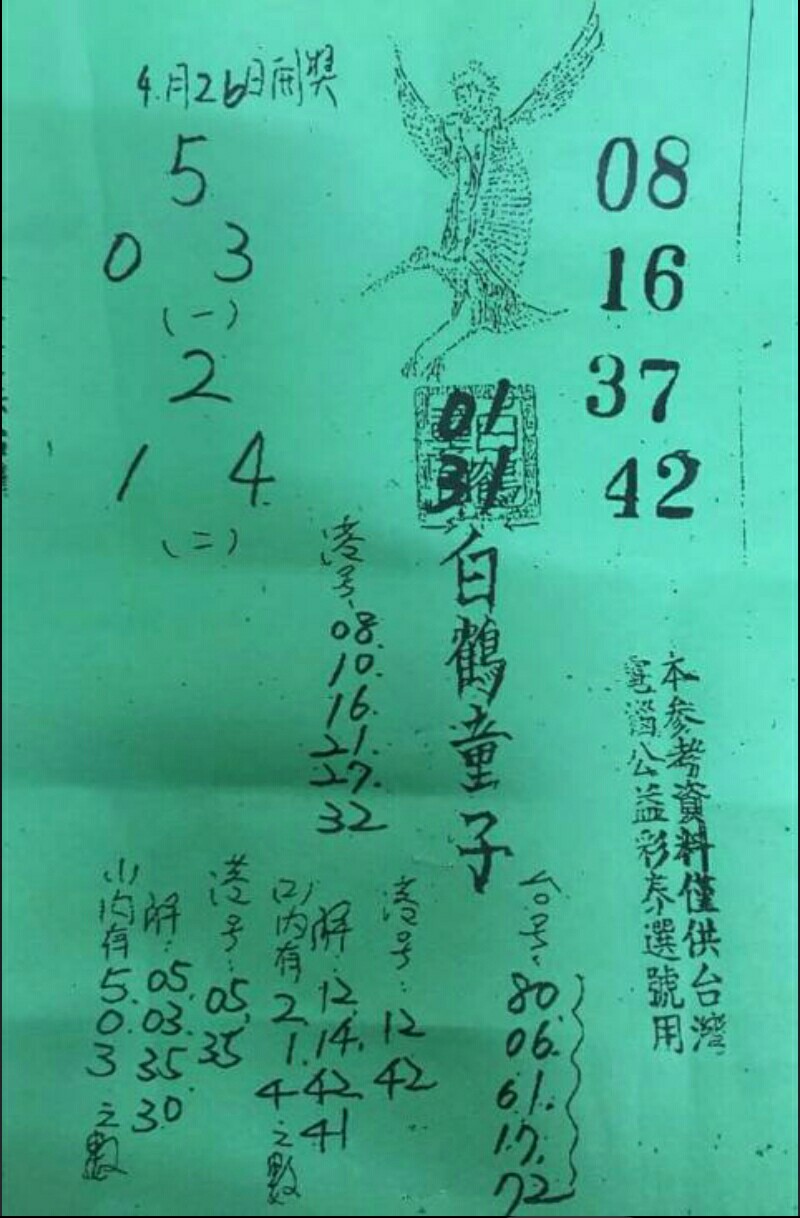 4月26日開獎
5
0 3
(一)
2
1 4
(二)
08
16
37
42
01
31
白鶴童子
本參考資料僅供台灣
電腦公益彩券選號用
港号:
08.
10.
16.
21.
27.
32
台号:
80.
06.
61.
17.
72
港号:
12
42
解:
12.
14.
42
41
(二)內有
2.
1.
4
之數
港号:
05.
35
解:
05.
03.
35.
30
(一)內有
5.
0.
3
之數